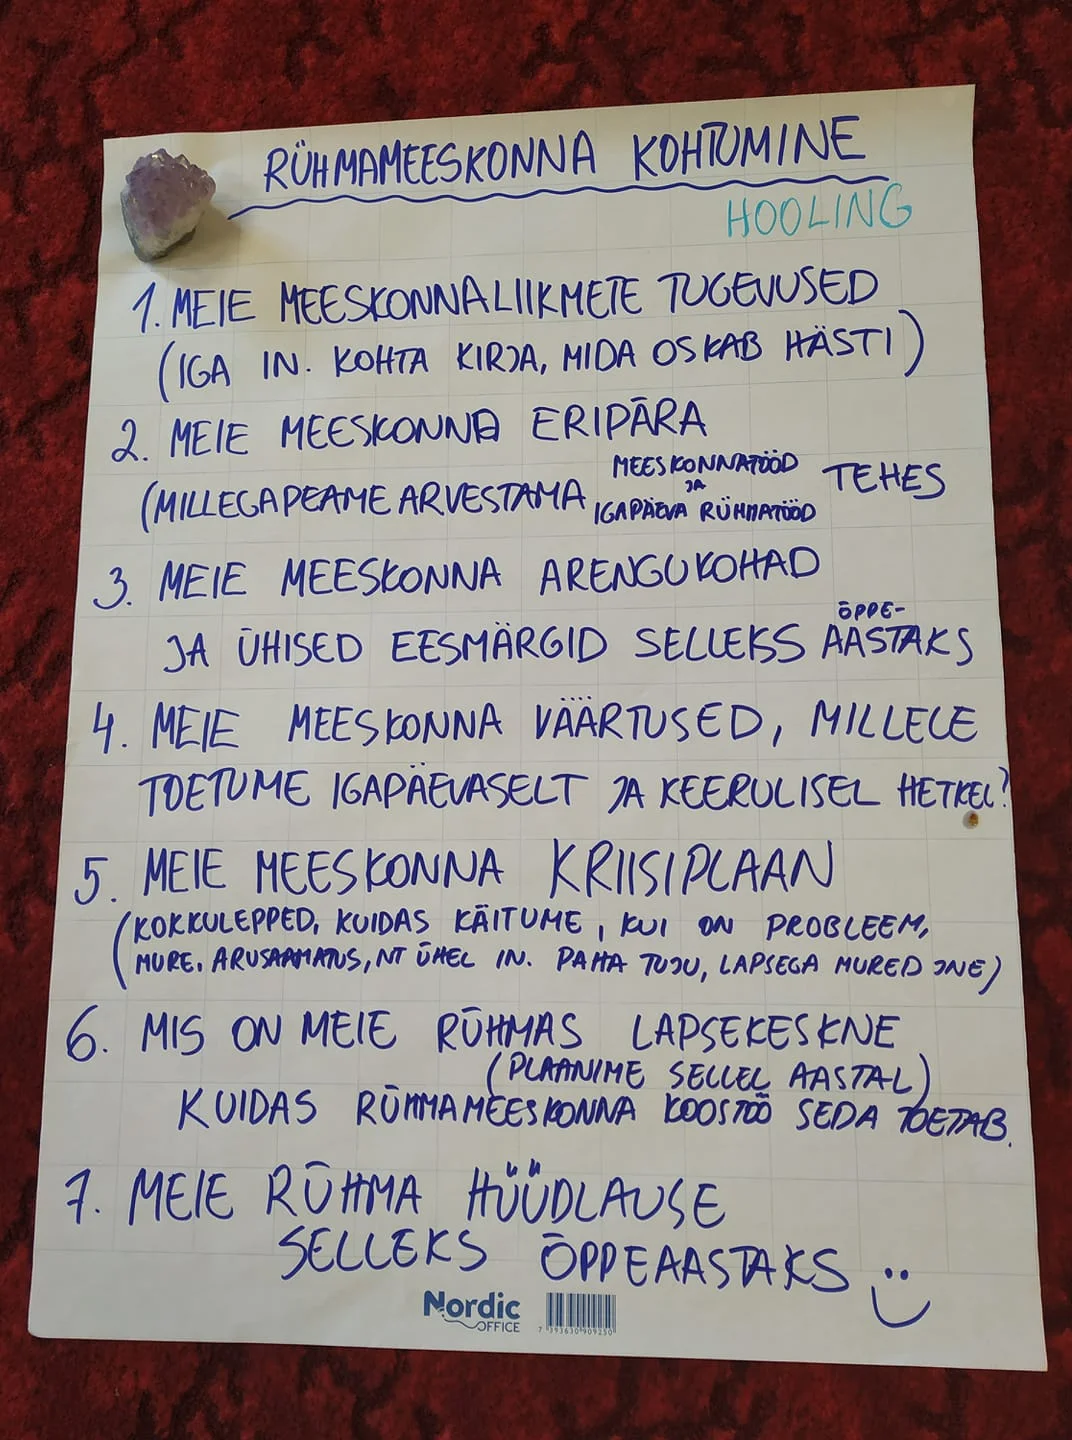 RÜHMAMEESKONNA KOHTUMINE
HOOLING
1. MEIE MEESKONNALIIKMETE TUGEVUSED
(IGA IN. KOHTA KIRJA, MIDA OSKAB HÄSTI)
2. MEIE MEESKONNA ERIPÄRA
(MILLEGA PEAME ARVESTAMA MEESKONNATÖÖD JA IGAPÄEVA RÜHMATÖÖD TEHES
3. MEIE MEESKONNA ARENGUKOHAD
JA ÜHISED EESMÄRGID SELLEKS ÕPPE-AASTAKS
4. MEIE MEESKONNA VÄÄRTUSED, MILLELE
TOETUME IGAPÄEVASELT JA KEERULISEL HETKEL?
5. MEIE MEESKONNA KRIISIPLAAN
(KOKKULEPPED, KUIDAS KÄITUME, KUI ON PROBLEEM,
MURE, ARUSAAMATUS, NT ÜHEL IN. PAHA TUJU, LAPSEGA MURED JNE)
6. MIS ON MEIE RÜHMAS LAPSEKESKNE
(PLAANIME SELLEL AASTAL)
KUIDAS RÜHMAMEESKONNA KOOSTÖÖ SEDA TOETAB.
7. MEIE RÜHMA HÜÜDLAUSE
SELLEKS ÕPPEAASTAKS
Nordic
OFFICE
7 393630 909250